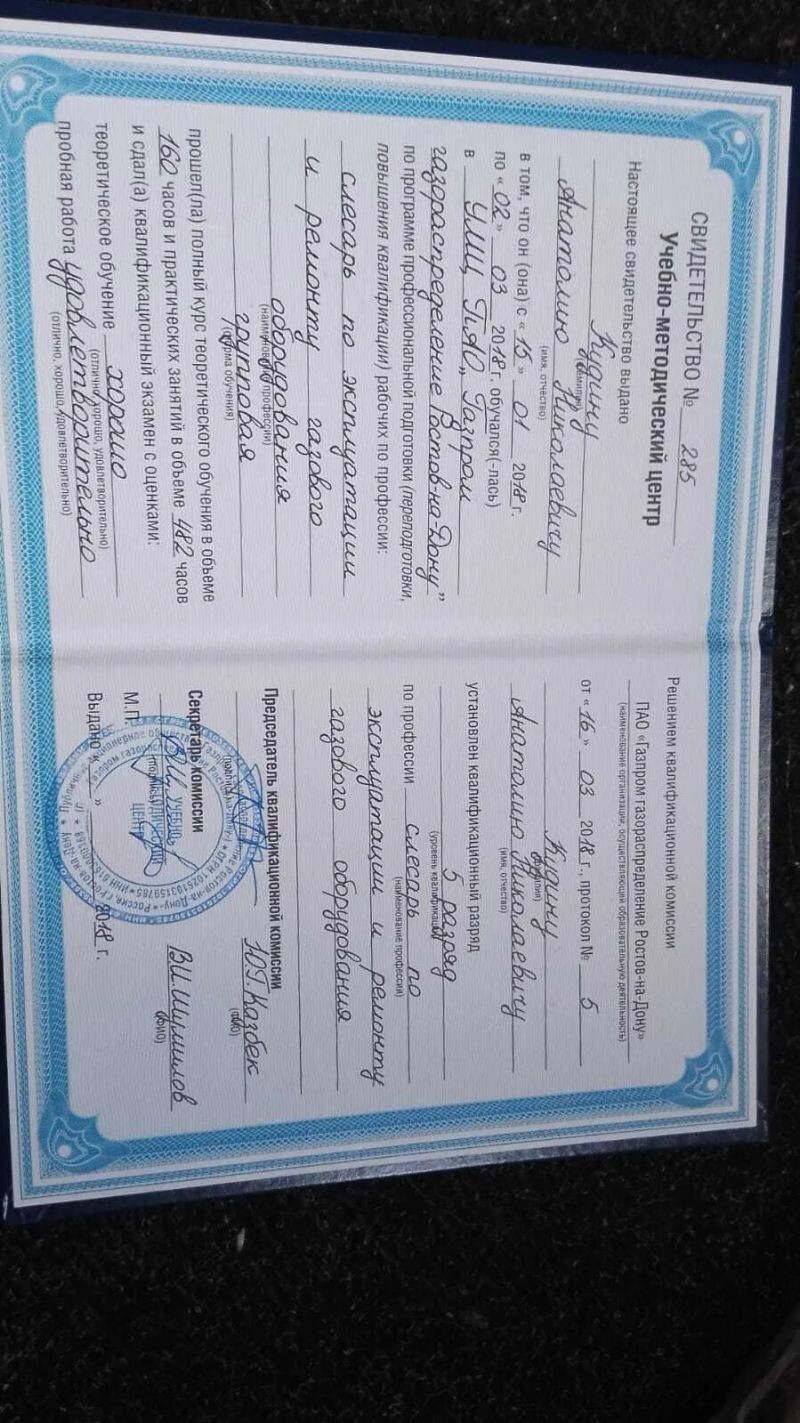 СВИДЕТЕЛЬСТВО № 285
Учебно-методический центр
Настоящее свидетельство выдано
Кудину
(фамилия)
Анатолию Николаевичу
(имя, отчество)
в том, что он (она) с «15» 01 2018 г.
по «02» 03 2018 г. обучался(-лась)
в УМЦ ПАО „Газпром
газораспределение Ростов-на-Дону”
по программе профессиональной подготовки (переподготовки,
повышения квалификации) рабочих по профессии:
слесарь по эксплуатации
и ремонту газового
оборудования
(наименование профессии)
групповая
(форма обучения)
прошел(ла) полный курс теоретического обучения в объеме
160 часов и практических занятий в объеме 482 часов
и сдал(а) квалификационный экзамен с оценками:
теоретическое обучение хорошо
(отлично, хорошо, удовлетворительно)
пробная работа удовлетворительно
(отлично, хорошо, удовлетворительно)
Решением квалификационной комиссии
ПАО «Газпром газораспределение Ростов-на-Дону»
(наименование организации, осуществляющей образовательную деятельность)
от «16» 03 2018 г., протокол № 5
Кудину
(фамилия)
Анатолию Николаевичу
(имя, отчество)
установлен квалификационный разряд
5 разряд
(уровень квалификации)
по профессии слесарь по
(наименование профессии)
эксплуатации и ремонту
газового оборудования
Председатель квалификационной комиссии
Ю.Г. Казбек
(ФИО)
Секретарь комиссии
В.И. Шумилов
(ФИО)
М.П.
УЧЕБНО-
МЕТОДИЧЕСКИЙ
ЦЕНТР
Выдано « » 2018 г.